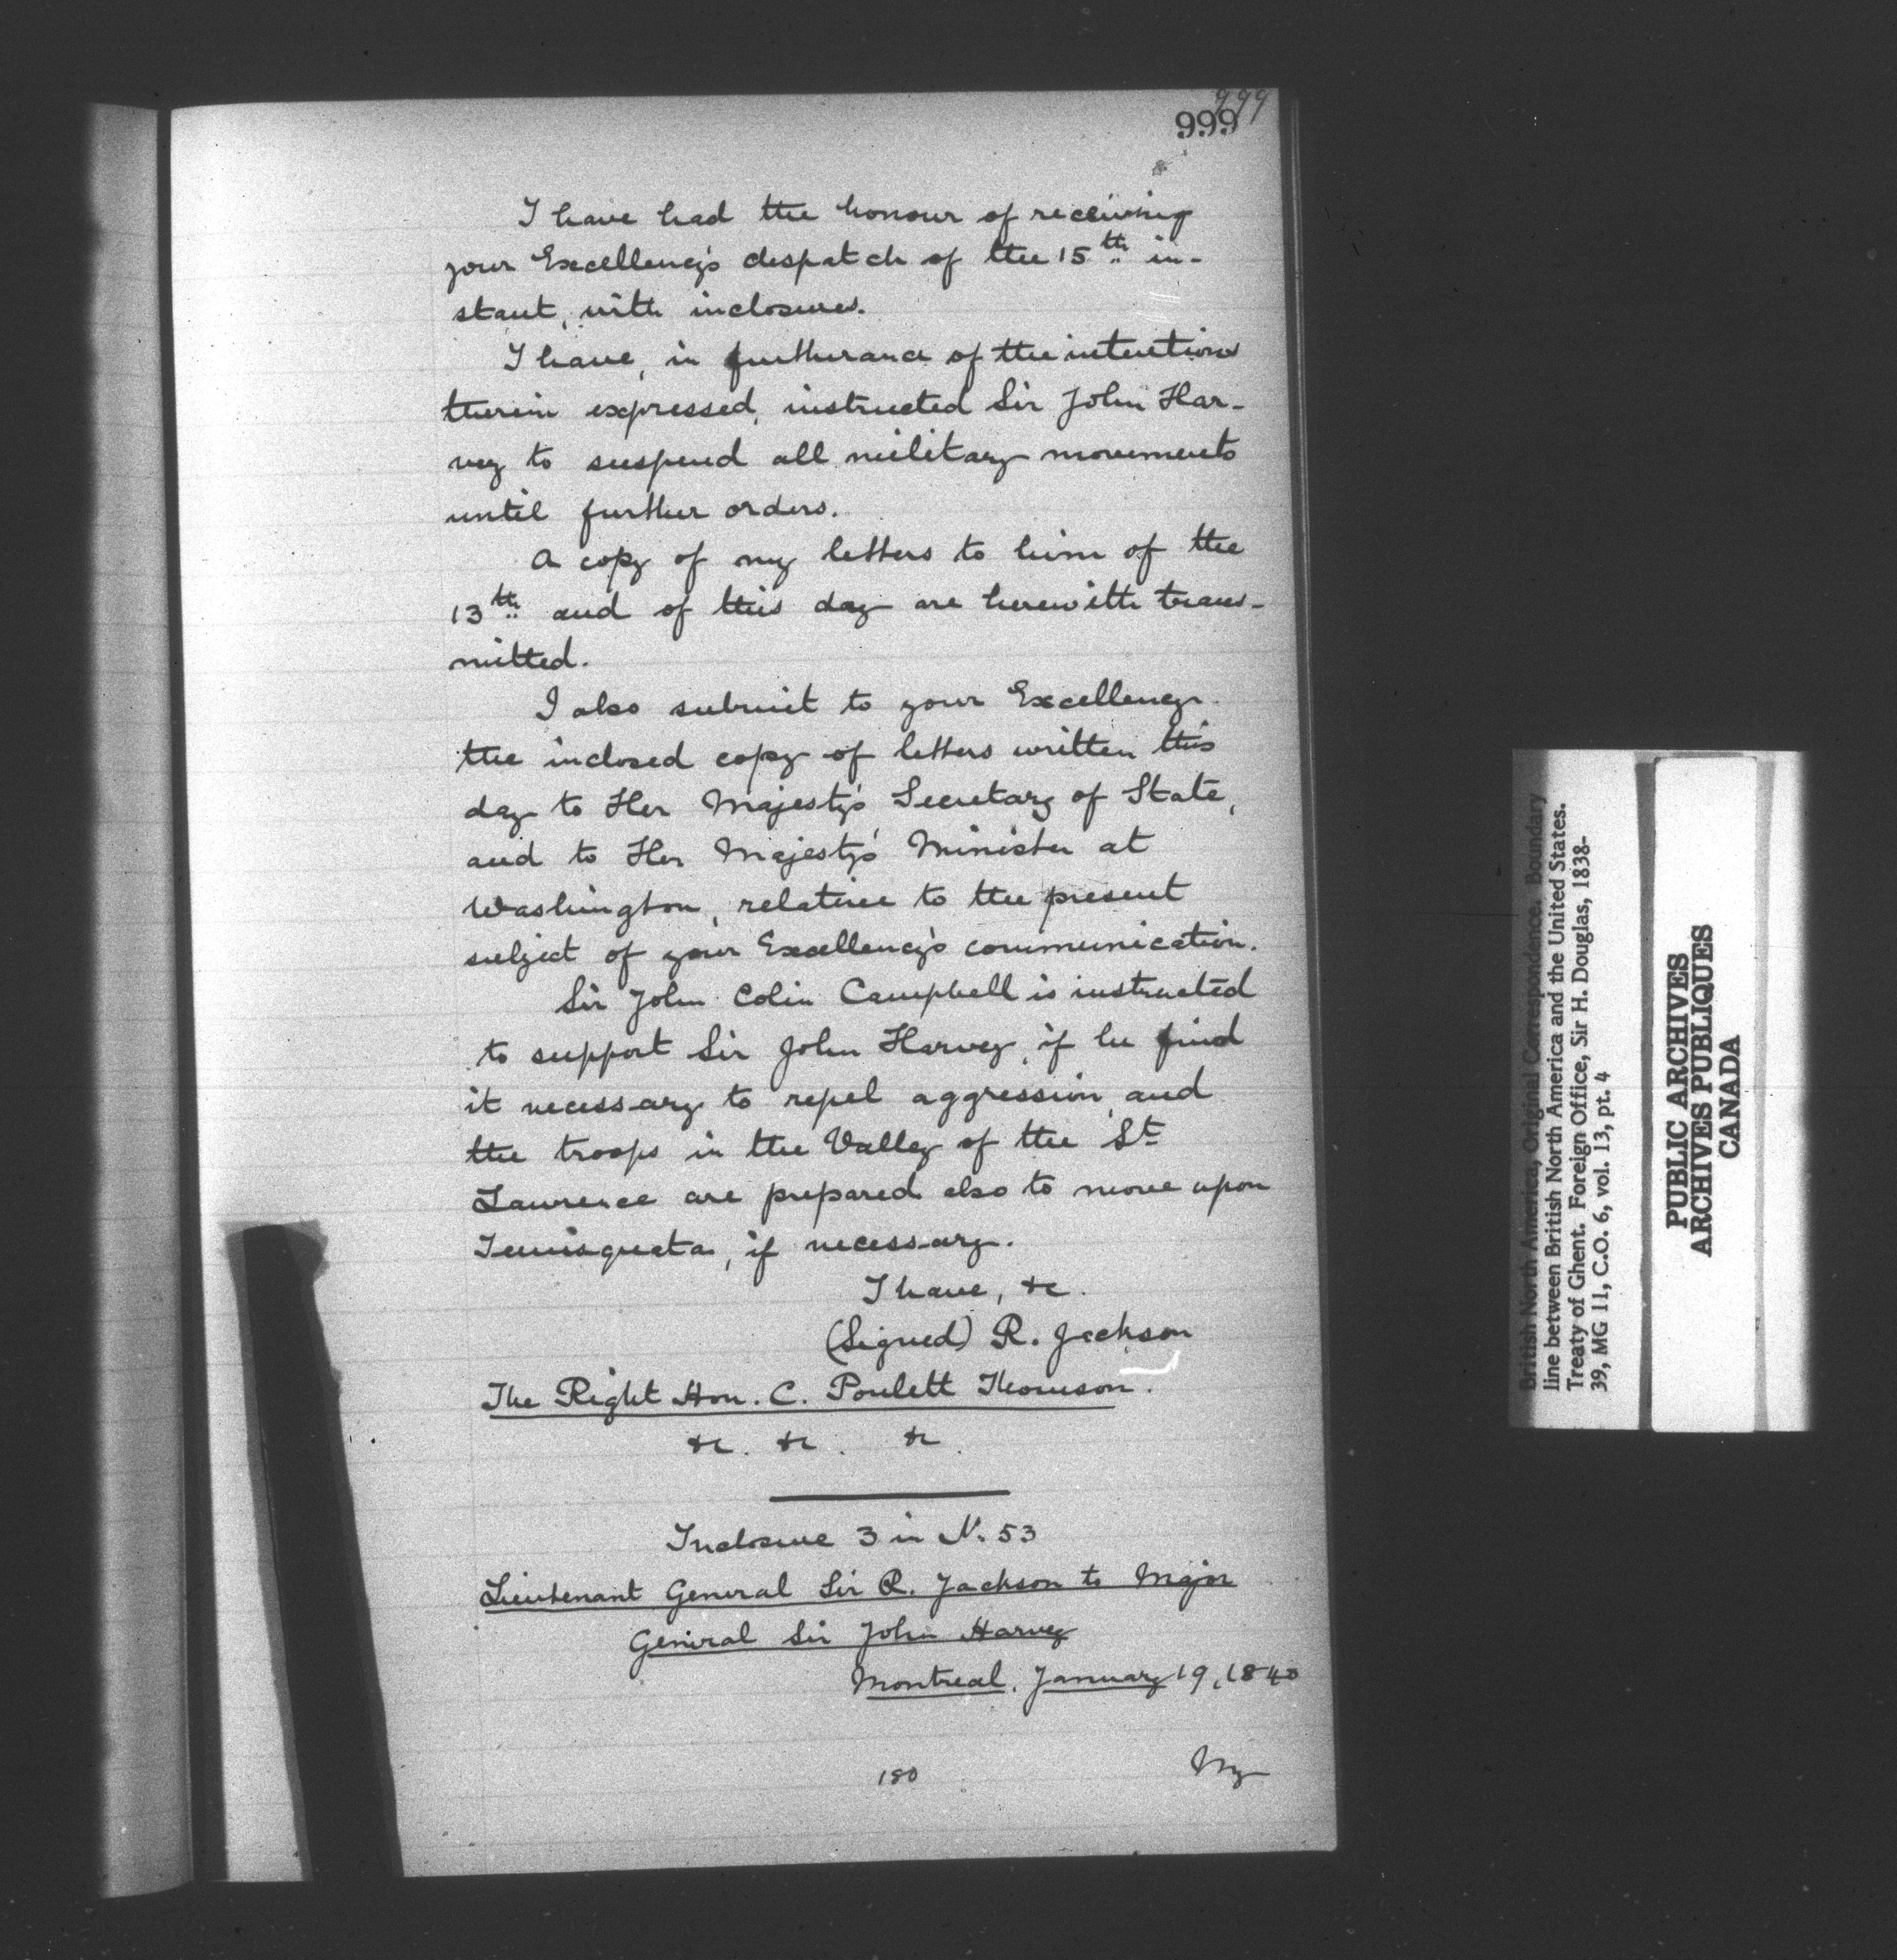 999
999
I have had the honour of receiving
your Excellency's despatch of the 15th in-
stant, with inclosures.
I have, in furtherance of the intentions
therein expressed, instructed Sir John Har-
vey to suspend all military movements
until further orders.
A copy of my letters to him of the
13th and of this day are herewith trans-
mitted.
I also submit to your Excellency
the inclosed copy of letters written this
day to Her Majesty's Secretary of State,
and to Her Majesty's Minister at
Washington, relative to the present
subject of your Excellency's communication.
Sir John Colin Campbell is instructed
to support Sir John Harvey, if he find
it necessary to repel aggression, and
the troops in the Valley of the St
Lawrence are prepared also to move upon
Temisquata, if necessary.
I have, &c.
(Signed) R. Jackson
The Right Hon. C. Poulett Thomson.
&c. &c. &c.
Inclosure 3 in N. 53
Lieutenant General Sir R. Jackson to Major
General Sir John Harvey
Montreal, January 19, 1840
180
My
British North America, Original Correspondence. Boundary
line between British North America and the United States.
Treaty of Ghent. Foreign Office, Sir H. Douglas, 1838-
39, MG 11, C.O. 6, vol. 13, pt. 4
PUBLIC ARCHIVES
ARCHIVES PUBLIQUES
CANADA